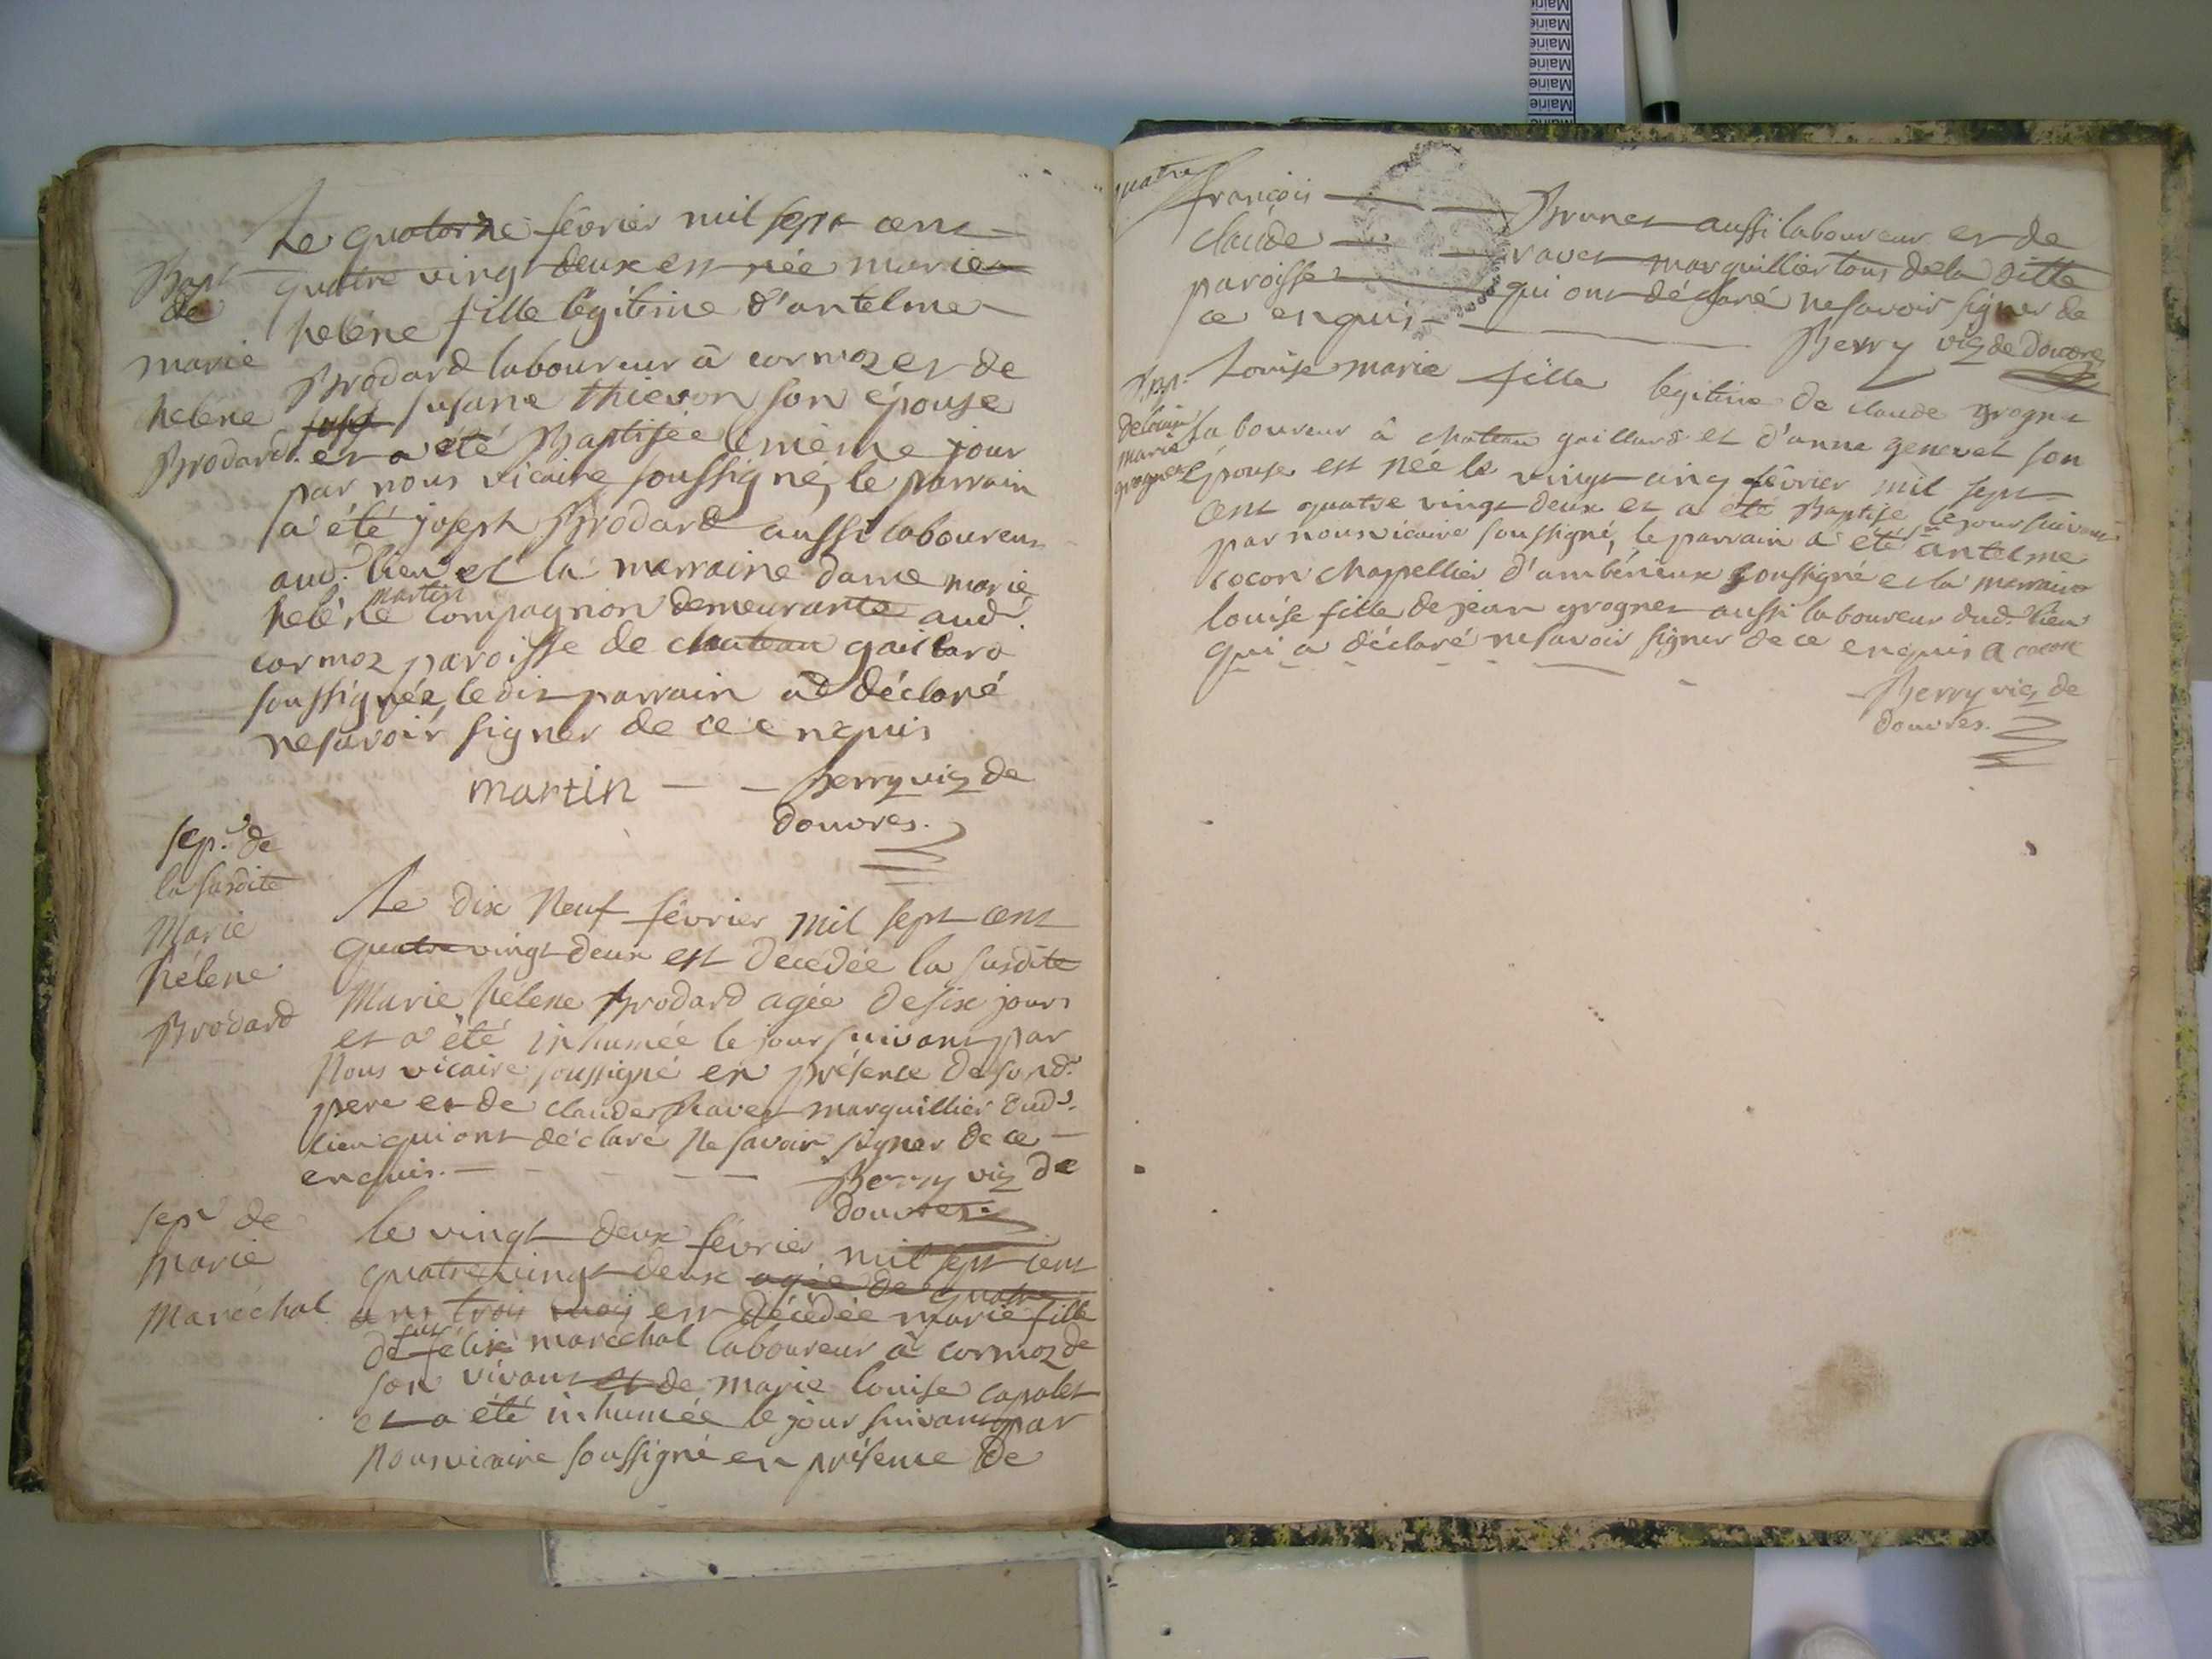 Mairie
Mairie
Mairie
Mairie
Mairie
Mairie
Bapt
de
marie
helene
Brodard.
Le quatorze février mil sept cent
quatre vingt deux est née marie
heléne fille légitime d'antelme
Brodard laboureur à cormoz et de
susane thievon son épouse
et a été Baptisée le même jour
par nous vicaire soussigné, le parrain
a été joseph Brodard aussi laboureur
aud. lieu et la marraine dame marie
heléne martin compagnion demeurante aud.
cormoz paroisse de chateau gaillard
soussignée, le dit parrain a déclaré
ne savoir signer de ce enquis
martin — — Berry vic de
douvres.
sep.re de
la susdite
Marie
hélene
Brodard
Le dix Neuf février mil sept cent
quatre vingt deux est décédée la susdite
Marie hélene Brodard agée de six jours
et a été inhumée le jour suivant par
Nous vicaire soussigné en présence de sond.
pere et de claude Ravet marguillier dud.
lieu qui ont déclaré Ne savoir signer de ce —
enquis. — — — Berry vic de
douvres.
sep.re de
Marie
Maréchal
le vingt deux février mil sept cent
quatre vingt deux agée de quatre
ans trois mois est décédée marie fille
de feu félix maréchal laboureur à cormoz de
son vivant et de marie louise capalet
et a été inhumée le jour suivant par
Nous vicaire soussigné en présence de
quatre
françois — — Brunet aussi laboureur et de
claude — — ravet marguillier tous de la ditte
paroisse — qui ont déclaré ne savoir signer de
ce enquis — — Berry vic de Douvres
Bap.
de louise
marie
grognet
Louise marie fille légitime de claude grognet
laboureur à chateau gaillard et d'anne genevet son
épouse est née le vingt cinq février mil sept
cent quatre vingt deux et a été Baptisée le jour suivant
par nous vicaire soussigné, le parrain a été antelme
cocon chappellier d'ambérieux soussigné et la marraine
louise fille de jean grognet aussi laboureur dud. lieu
qui a déclaré ne savoir signer de ce enquis a cocon
Berry vic de
douvres.